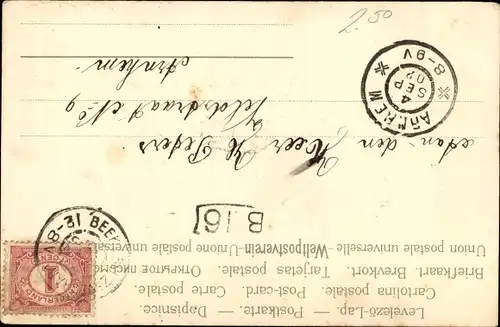 Levelező-Lap. — Postkarte. — Dopisnice.
Cartolina postale. Post-card. Carte postale.
Briefkaart. Brevkort. Tarjetas postale. ОТКРЫТОЕ ПИСЬМО
Union postale universelle Weltpostverein Unione postale universale
B.16
Aan den Heer H. Peters
Veldstraat No 9
Arnhem
ARNHEM
4 SEP 02
8-9V
BEEK
8-12
NEDERLAND
1
2.50